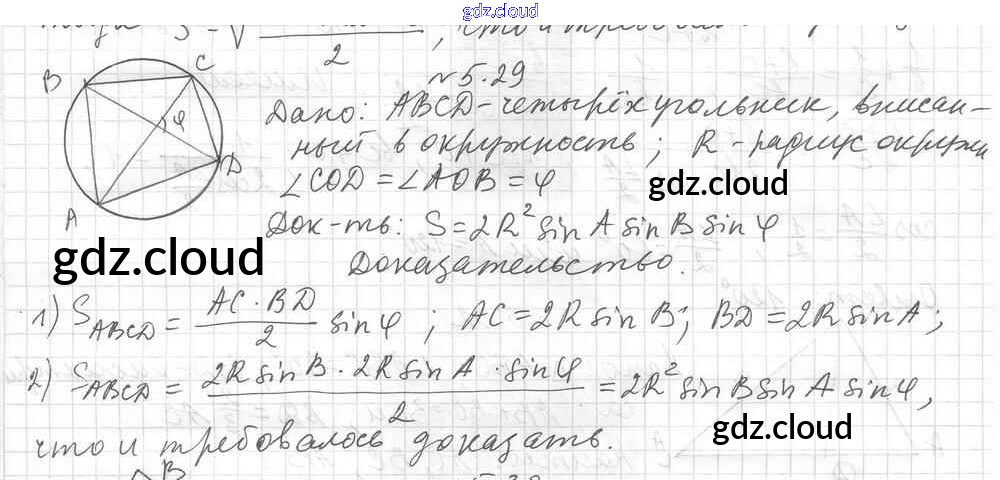 gdz.cloud
2
№5.29
B C φ D A
Дано: ABCD-четырёхугольник, вписан-
ный в окружность; R-радиус окружн
∠COD=∠AOB=φ
gdz.cloud
Док-ть: S=2R² sin A sin B sin φ
gdz.cloud
Доказательство.
1) S_ABCD = AC·BD/2 sin φ; AC=2R sin B; BD=2R sin A;
2) S_ABCD = 2R sin B · 2R sin A · sin φ/2 = 2R² sin B sin A sin φ,
gdz.cloud
что и требовалось доказать.
B